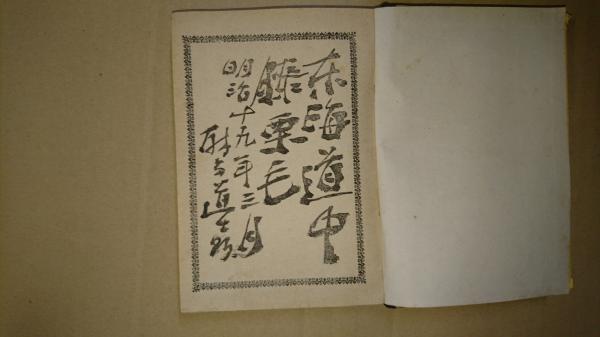 東海道中
膝栗毛
明治十九年三月
道士